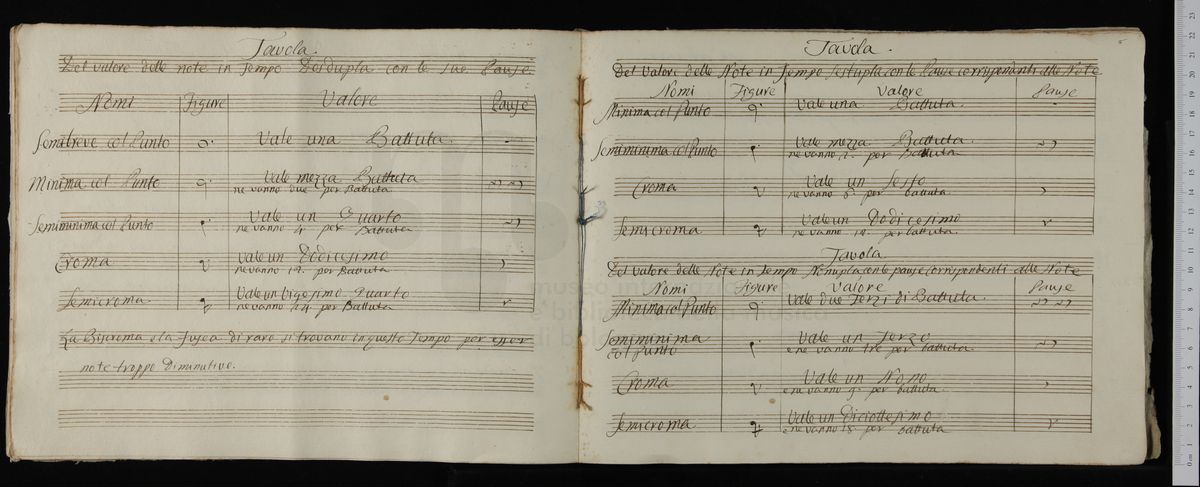 Tavola.
Del valore delle note in Tempo Dosdupla con le sue Pause.
Nomi Figure Valore Pause
Semibreve col Punto Vale una Battuta.
Minima col Punto Vale mezza Battuta
ne vanno due per Battuta
Semiminima col Punto Vale un Quarto
ne vanno 4. per Battuta
Croma Vale un Dodicesimo
ne vanno 12. per Battuta
Semicroma Vale un Vigesimo Quarto
ne vanno 24 per Battuta
La Biscroma e la Fusea di raro si trovano in questo Tempo per esser
note troppo Diminutive.
6
Tavola.
Del Valore delle Note in Tempo sestupla con le Pause corrispondenti alle Note
Nomi Figure Valore Pause
Minima col Punto Vale una Battuta.
Semiminima col Punto Vale mezza Battuta
ne vanno 2. per Battuta
Croma Vale un Sesto
ne vanno 6. per battuta.
Semicroma Vale un Dodicesimo
ne vanno 12. per battuta.
Tavola
Del valore delle Note in Tempo Nonupla con le pause corrispondenti alle Note
Nomi Figure Valore Pause
Minima col Punto Vale due Terzi di Battuta.
Semiminima Vale un Terzo
col Punto e ne vanno tre per battuta.
Croma Vale un Nono
e ne vanno 9. per battuta.
Semicroma Vale un Diciottesimo
e ne vanno 18. per battuta